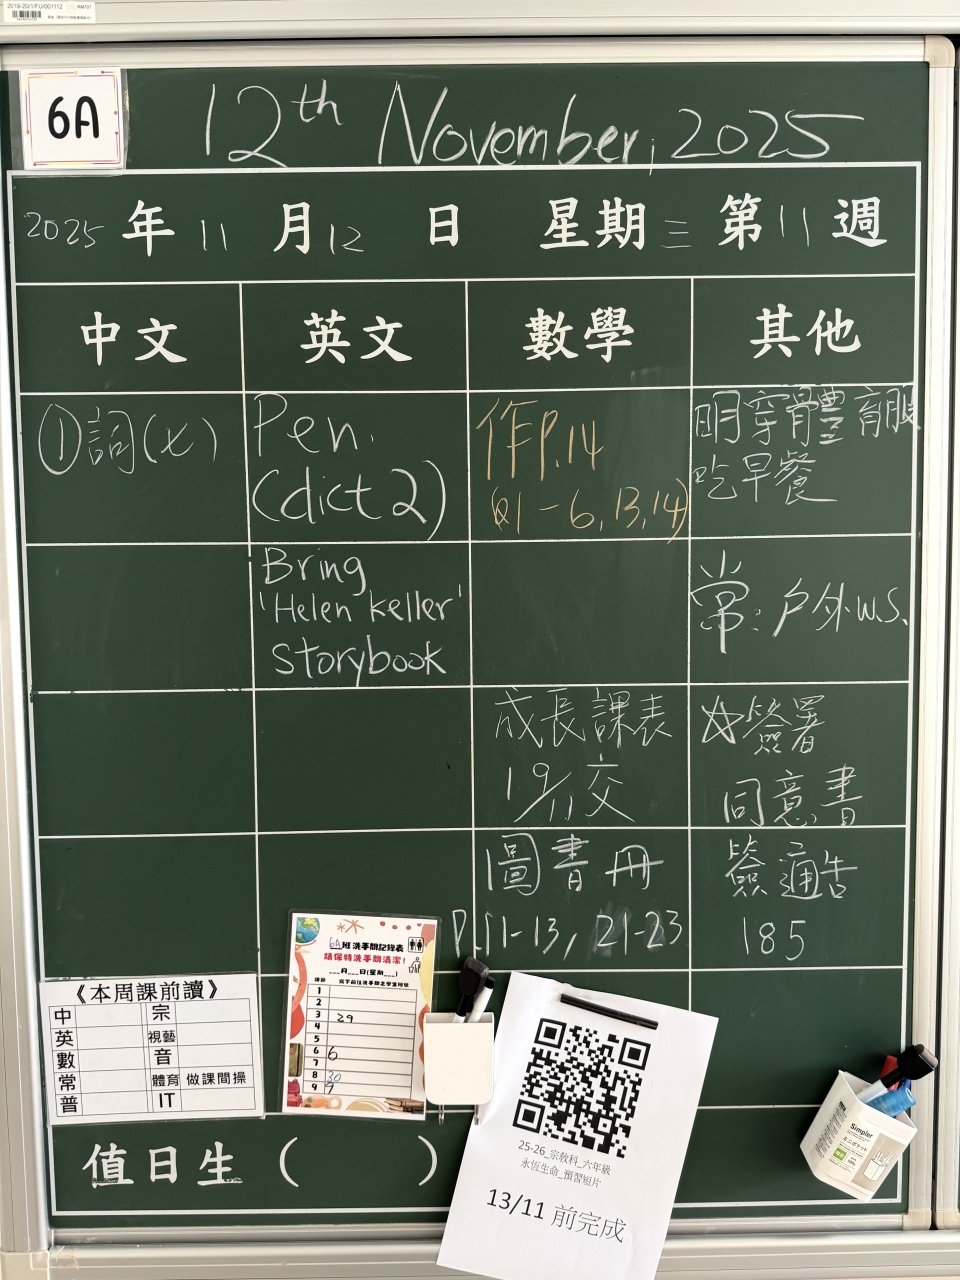 2019-20/1/FU/001112
6A
12th November, 2025
2025 年 11 月 12 日 星期 三 第 11 週
中文 英文 數學 其他
①詞(乂)
Pen.
(dict 2)
作P.14
(Q1-6, 13, 14)
明穿體育服
吃早餐
Bring
'Helen Keller'
storybook
常: 戶外W.S.
成長課表
19/11交
☆簽署
同意書
圖書冊
P.11-13, 21-23
簽通告
185
《本周課前讀》
中 宗
英 視藝
數 音
常 體育 做課間操
普 IT
6A班洗手間記錄表
請保特洗手間清潔!
___月___日(星期___)
課節 寫下前往洗手間之學生班號
1
2
3 29
4
5
6 6
7
8 20
9 7
25-26_宗教科_六年級
永恆生命_預習短片
13/11 前完成
Simpler
ミニポケット
值日生 ( )